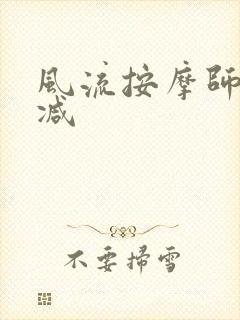 風流按摩師
減
不要掃雪